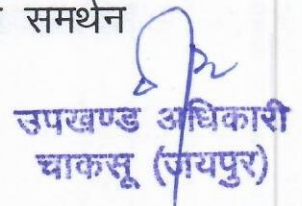 समर्थन
उपखण्ड अधिकारी
चाकसू (जयपुर)